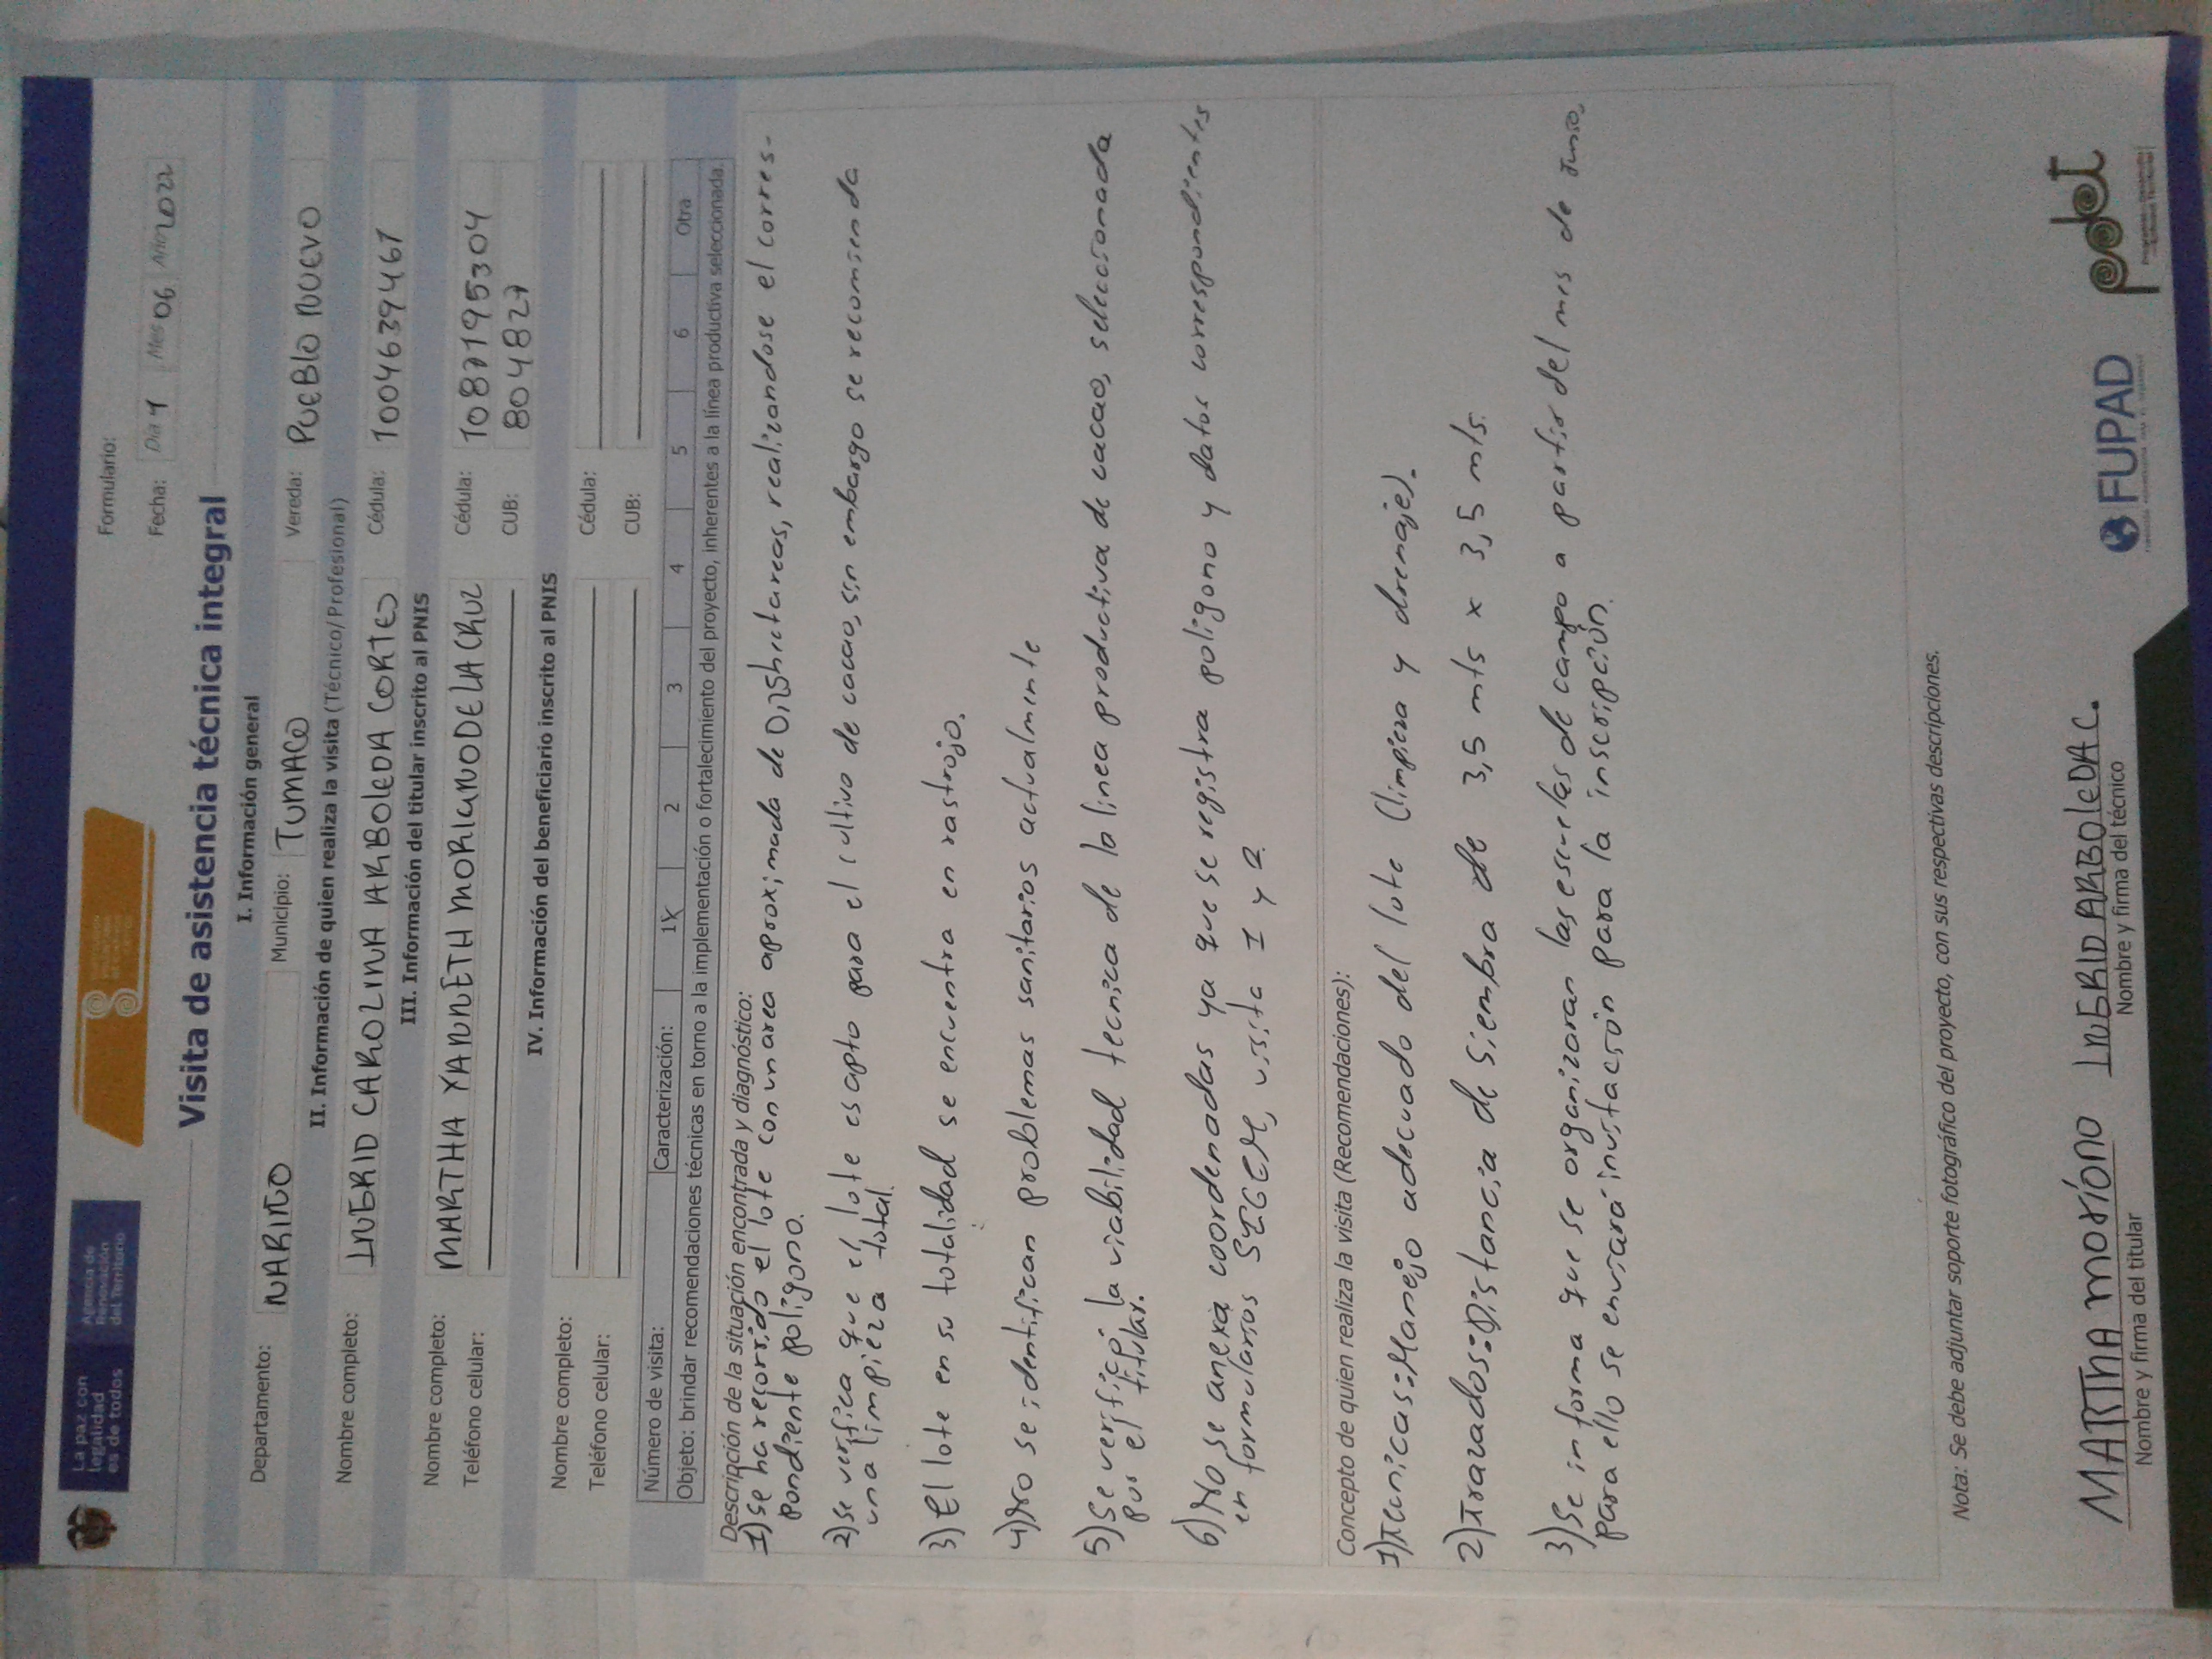 La paz con
legalidad
es de todos
Agencia de
Renovación
del Territorio
Formulario:
Fecha: Día 1 Mes 06 Año 2022
Visita de asistencia técnica integral
I. Información general
Departamento: NARIÑO Municipio: TUMACO Vereda: PUEBLO NUEVO
II. Información de quien realiza la visita (Técnico/Profesional)
Nombre completo: INGRID CAROLINA ARBOLEDA CORTES Cédula: 1004639461
III. Información del titular inscrito al PNIS
Nombre completo: MARTHA YANNETH MORIANO DE LA CRUZ Cédula: 1087195304
Teléfono celular: CUB: 804827
IV. Información del beneficiario inscrito al PNIS
Nombre completo: Cédula:
Teléfono celular: CUB:
Número de visita: Caracterización: 1X 2 3 4 5 6 Otra
Objeto: brindar recomendaciones técnicas en torno a la implementación o fortalecimiento del proyecto, inherentes a la línea productiva seleccionada.
Descripción de la situación encontrada y diagnóstico:
1) se ha recorrido el lote con un area aproximada de 0,25 hectareas, realizandose el corres-
pondiente poligono.
2) se verifica que el lote es apto para el cultivo de cacao, sin embargo se recomienda
una limpieza total.
3) El lote en su totalidad se encuentra en rastrojo.
4) No se identifican problemas sanitarios actualmente
5) Se verificó la viabilidad tecnica de la linea productiva de cacao, seleccionada
por el titular.
6) No se anexa coordenadas ya que se registra poligono y datos correspondientes
en formularios SIGCEM, visita 1 y 2.
Concepto de quien realiza la visita (Recomendaciones):
1) Tecnicas: Manejo adecuado del lote (limpieza y drenaje).
2) Trazados: Distancia de siembra de 3,5 mts x 3,5 mts.
3) Se informa que se organizaran las escuelas de campo a partir del mes de Junio,
para ello se enviará invitación para la inscripción.
Nota: Se debe adjuntar soporte fotográfico del proyecto, con sus respectivas descripciones.
MARTHA moríono INGRID ARBOLEDA C.
Nombre y firma del titular Nombre y firma del técnico
FUPAD
pdet